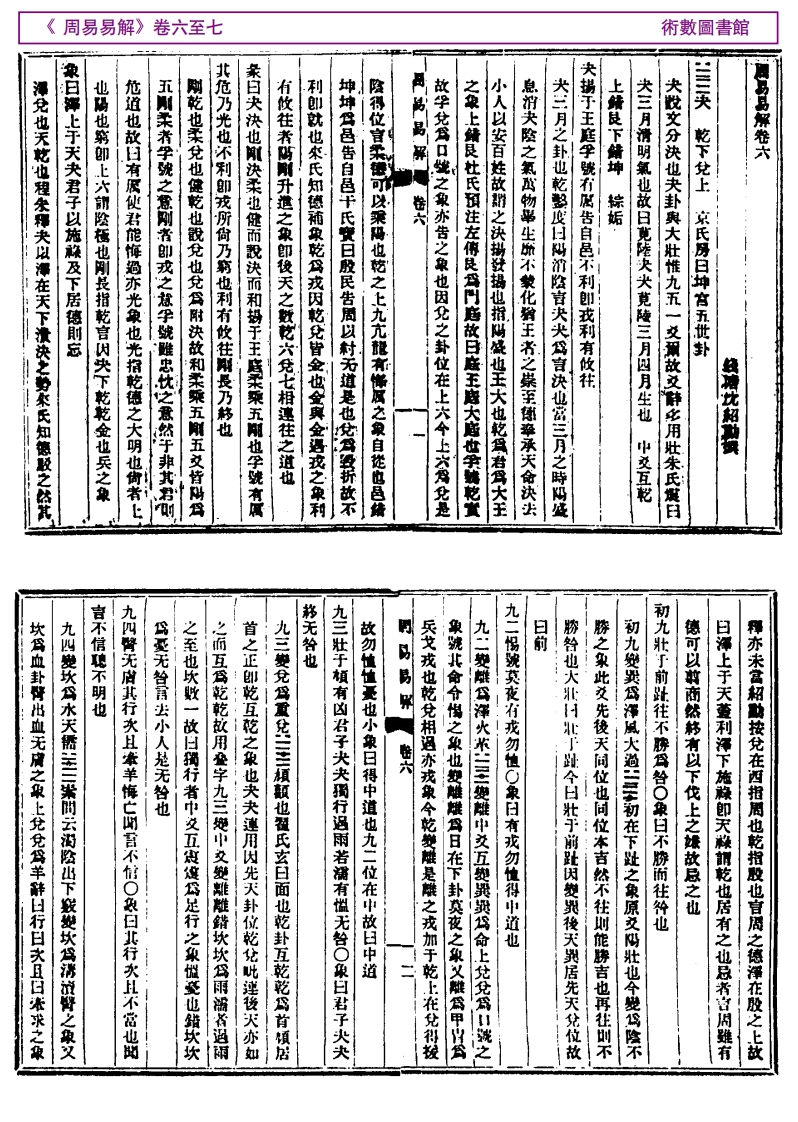 《 周易易解》卷六至七
術數圖書館
周易易解卷六
錢塘沈紹勳撰
☱☰夬 乾下兌上 京氏房曰坤宮五世卦
夬說文分決也夬卦與大壯惟九五一爻爾故爻辭多用壯朱氏震曰
夬三月清明氣也故曰莧陸夬夬莧陸三月四月生也 中爻互乾
上錯艮下錯坤 綜姤
夬揚于王庭孚號有厲告自邑不利即戎利有攸往
夬三月之卦也乾鑿度曰陽消陰言夬夬為言決也當三月之時陽盛
息消夬陰之氣萬物畢生靡不蒙化猶王者之崇至德奉承天命決去
小人以安百姓故謂之決揚發揚也指陽盛也王大也乾為君為大王
之象上錯艮杜氏預注左傳艮為門庭故曰庭王庭大庭也孚號乾實
故孚兌為口號之象亦告之象也因兌之卦位在上六今上六為兌是
周易易解 卷六 一
陰得位言柔德可以乘陽也乾之上九亢龍有悔厲之象自從也邑錯
坤坤為邑告自邑干氏寶曰殷民告周以紂无道是也兌為毀折故不
利即就也來氏知德補象乾為戎因乾兌皆金也金與金遇戎之象利
有攸往者陽剛升進之象即後天之數乾六兌七相連往之道也
彖曰夬決也剛決柔也健而說決而和揚于王庭柔乘五剛也孚號有厲
其危乃光也不利即戎所尙乃窮也利有攸往剛長乃終也
剛乾也柔兌也健乾也說兌也兌為附決故和柔乘五剛五爻皆陽為
五剛柔者孚號之意剛者即戎之意孚號雖忠忱之意然于非其君則
危道也故曰有厲使君能悔過亦光象也光指乾德之大明也尙者上
也陽也窮即上六謂陰極也剛長指乾言因夬下乾乾金也兵之象
象曰澤上于天夬君子以施祿及下居德則忌
澤兌也天乾也程朱釋夬以澤在天下潰決之勢來氏知德駁之然其
釋亦未當紹勳按兌在西指周也乾指殷也言周之德澤在殷之上故
曰澤上于天蓋利澤下施祿即天祿謂乾也居有之也忌者言周雖有
德可以翦商然終有以下伐上之嫌故忌之也
初九壯于前趾往不勝為咎○象曰不勝而往咎也
初九變巽為澤風大過☱☴初在下趾之象原爻陽壯也今變為陰不
勝之象此爻先後天同位也同位本吉然不往則能勝吉也再往則不
勝咎也大壯曰壯于趾今曰壯于前趾因變巽後天巽居先天兌位故
曰前
九二惕號莫夜有戎勿恤○象曰有戎勿恤得中道也
九二變離為澤火革☱☲變離中爻互變巽巽為命上兌兌為口號之
象號其命令惕之象也變離離為日在下卦莫夜之象又離為甲冑為
兵戈戎也乾兌相遇亦戎象今乾變離是離之戎加于乾上在兌得援
周易易解 卷六 二
故勿恤恤憂也小象曰得中道也九二位在中故曰中道
九三壯于頄有凶君子夬夬獨行遇雨若濡有慍无咎○象曰君子夬夬
終无咎也
九三變兌為重兌☱☱頄顴也翟氏玄曰面也乾卦互乾乾為首頄居
首之正即乾互乾之象也夬夬連用因先天卦位乾兌毗連後天亦如
之而互為乾乾故用叠字九三變中爻變離離錯坎坎為雨濡者遇雨
之至也坎數一故曰獨行者中爻互震震為足行之象慍憂也錯坎坎
為憂无咎言去小人是无咎也
九四臀无膚其行次且牽羊悔亡聞言不信○象曰其行次且不當也聞
言不信聰不明也
九四變坎為水天需☵☰素問云濁陰出下竅變坎為溝瀆臀之象又
坎為血卦臀出血无膚之象上兌兌為羊辭曰行曰次且曰牽求之象